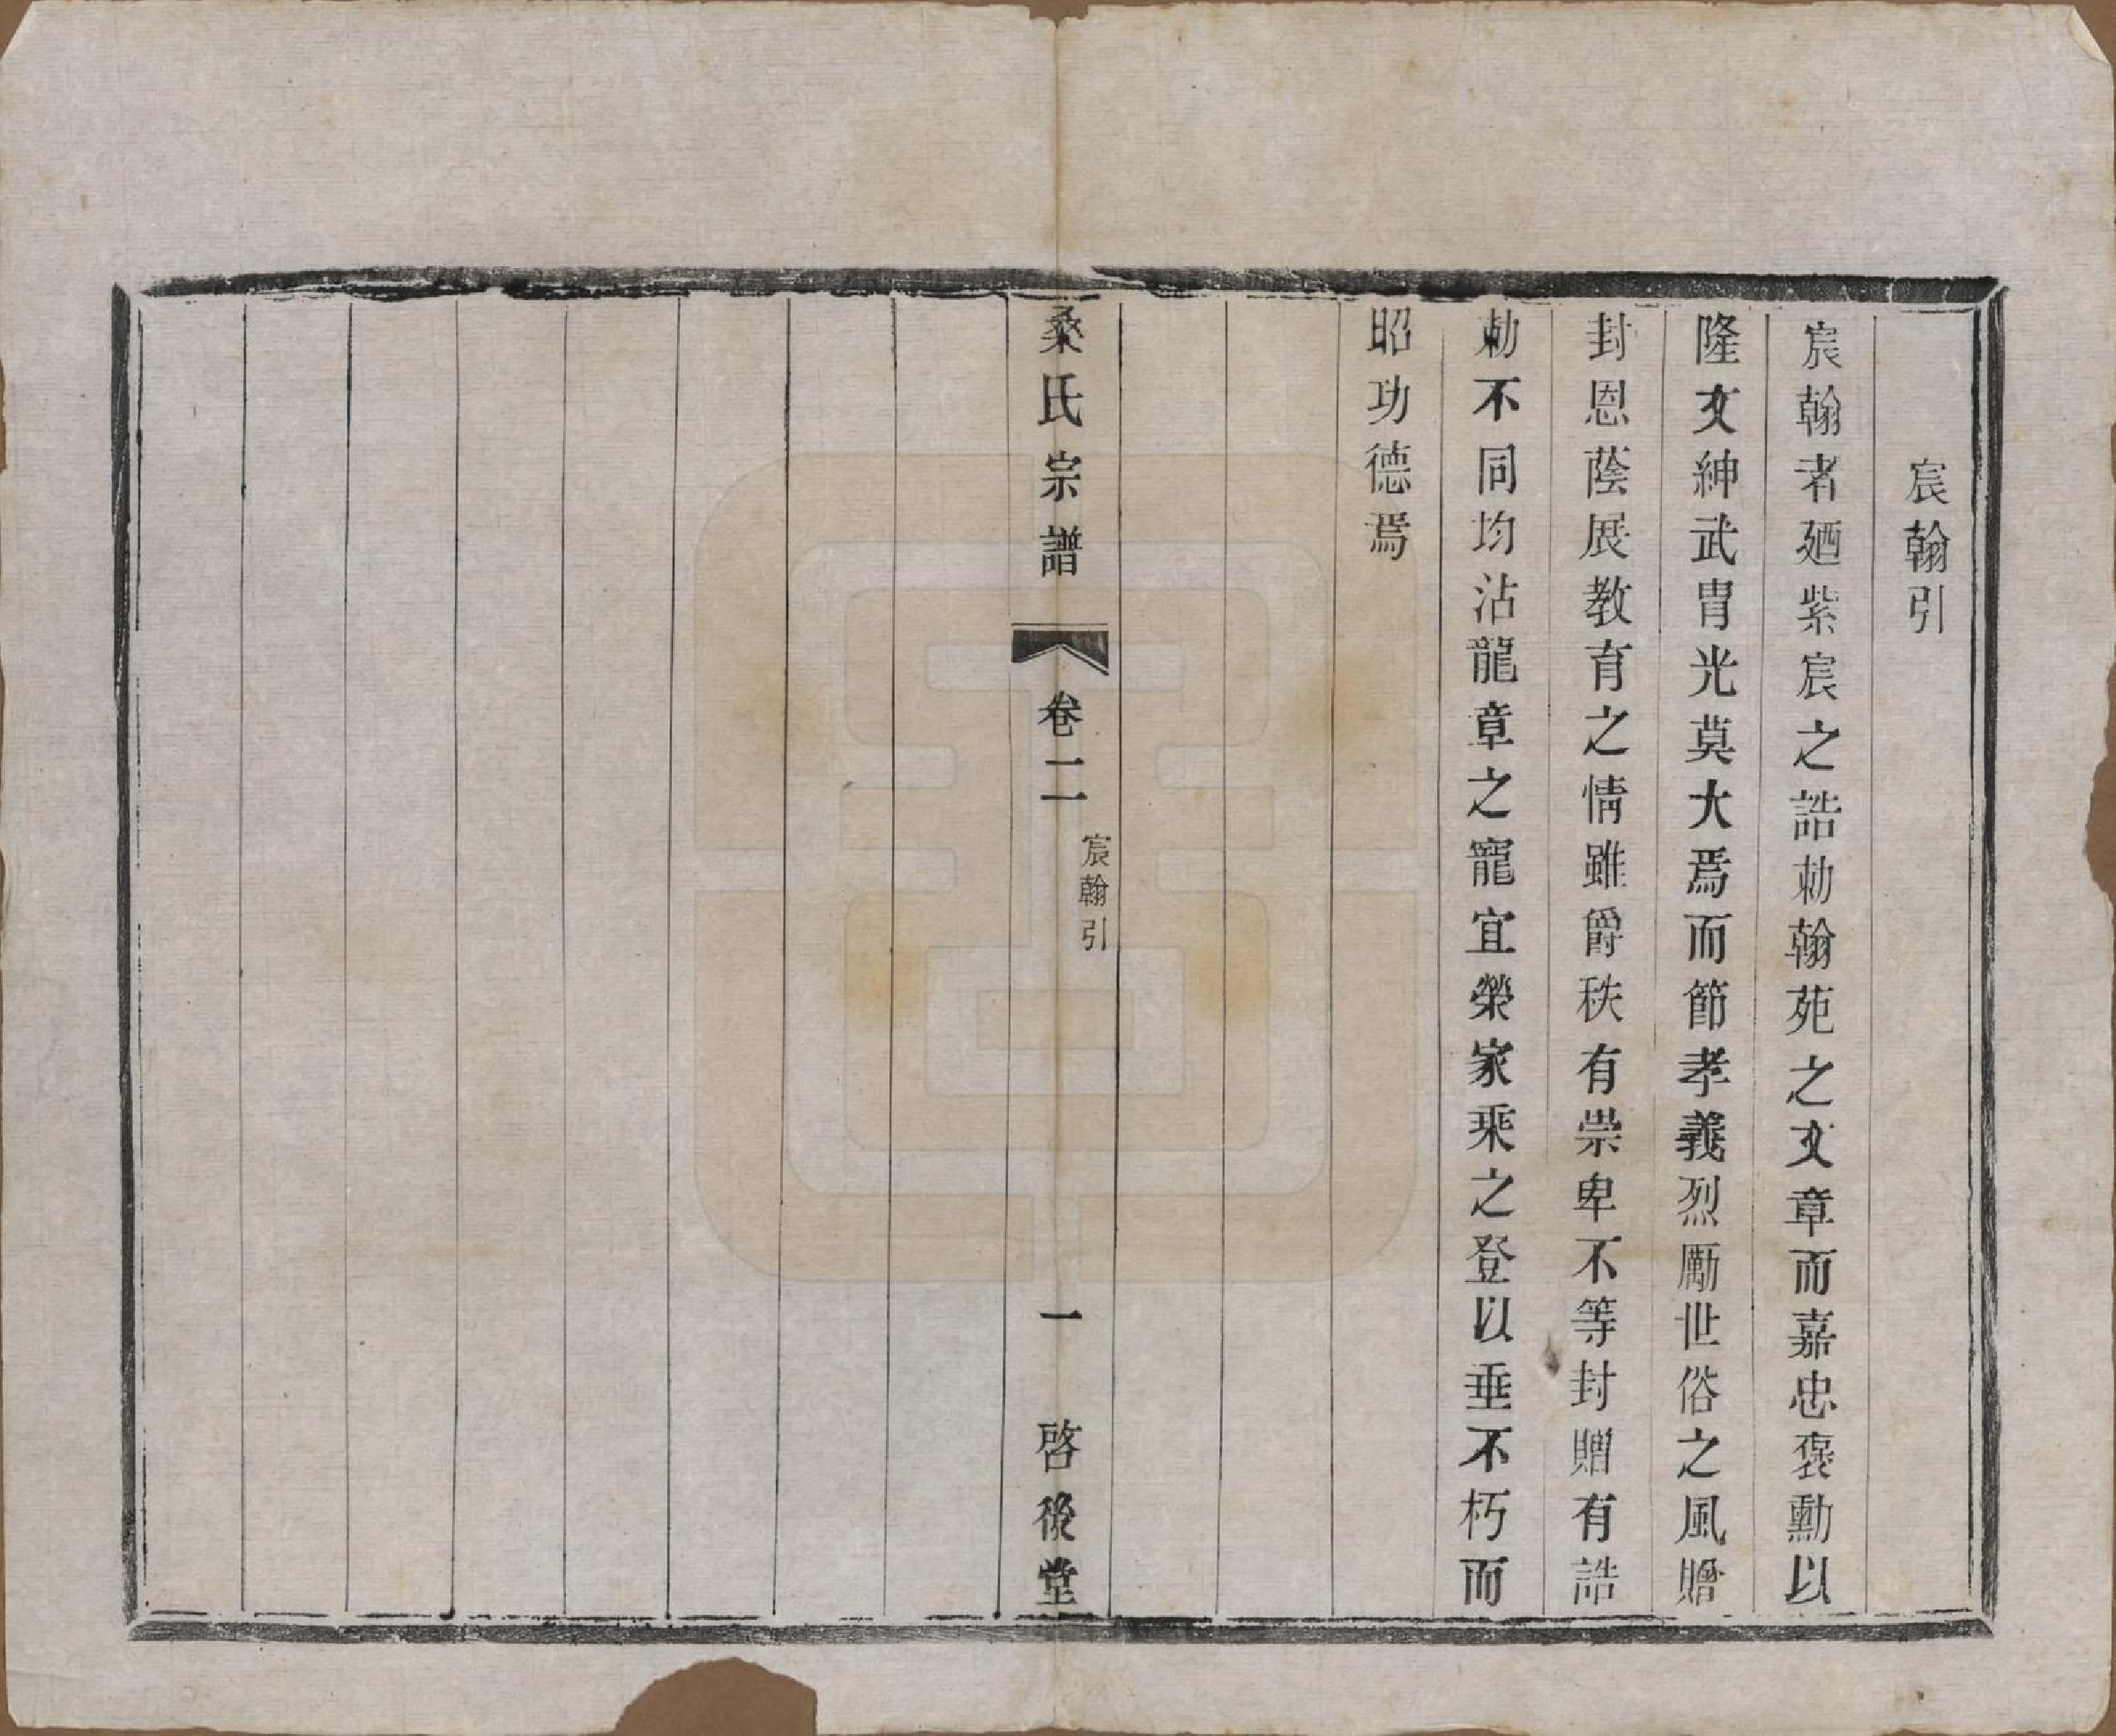 宸翰引
宸翰者廼紫宸之誥勅翰苑之文章而嘉忠褒勳以
隆文紳武胄光莫大焉而節孝義烈勵世俗之風贈
封恩蔭展教育之情雖爵秩有崇卑不等封贈有誥
勅不同均沾龍章之寵宜榮家乘之登以垂不朽而
昭功德焉
桑氏宗譜 卷二 宸翰引 一 啓後堂